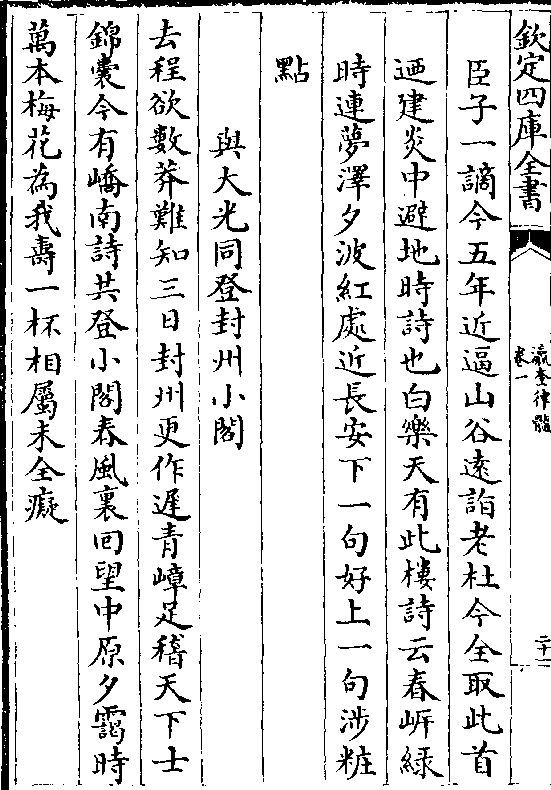 欽定四庫全書
瀛奎律髓
卷一
二十一
臣子一謫今五年近逼山谷遠詣老杜今全取此首
迺建炎中避地時詩也白樂天有此樓詩云春岍綠
時連夢澤夕波紅處近長安下一句好上一句涉粧
點
與大光同登封州小閣
去程欲數莽難知三日封州更作遲青嶂足稽天下士
錦囊今有嶠南詩共登小閣春風裏回望中原夕靄時
萬本梅花為我壽一杯相屬未全癡